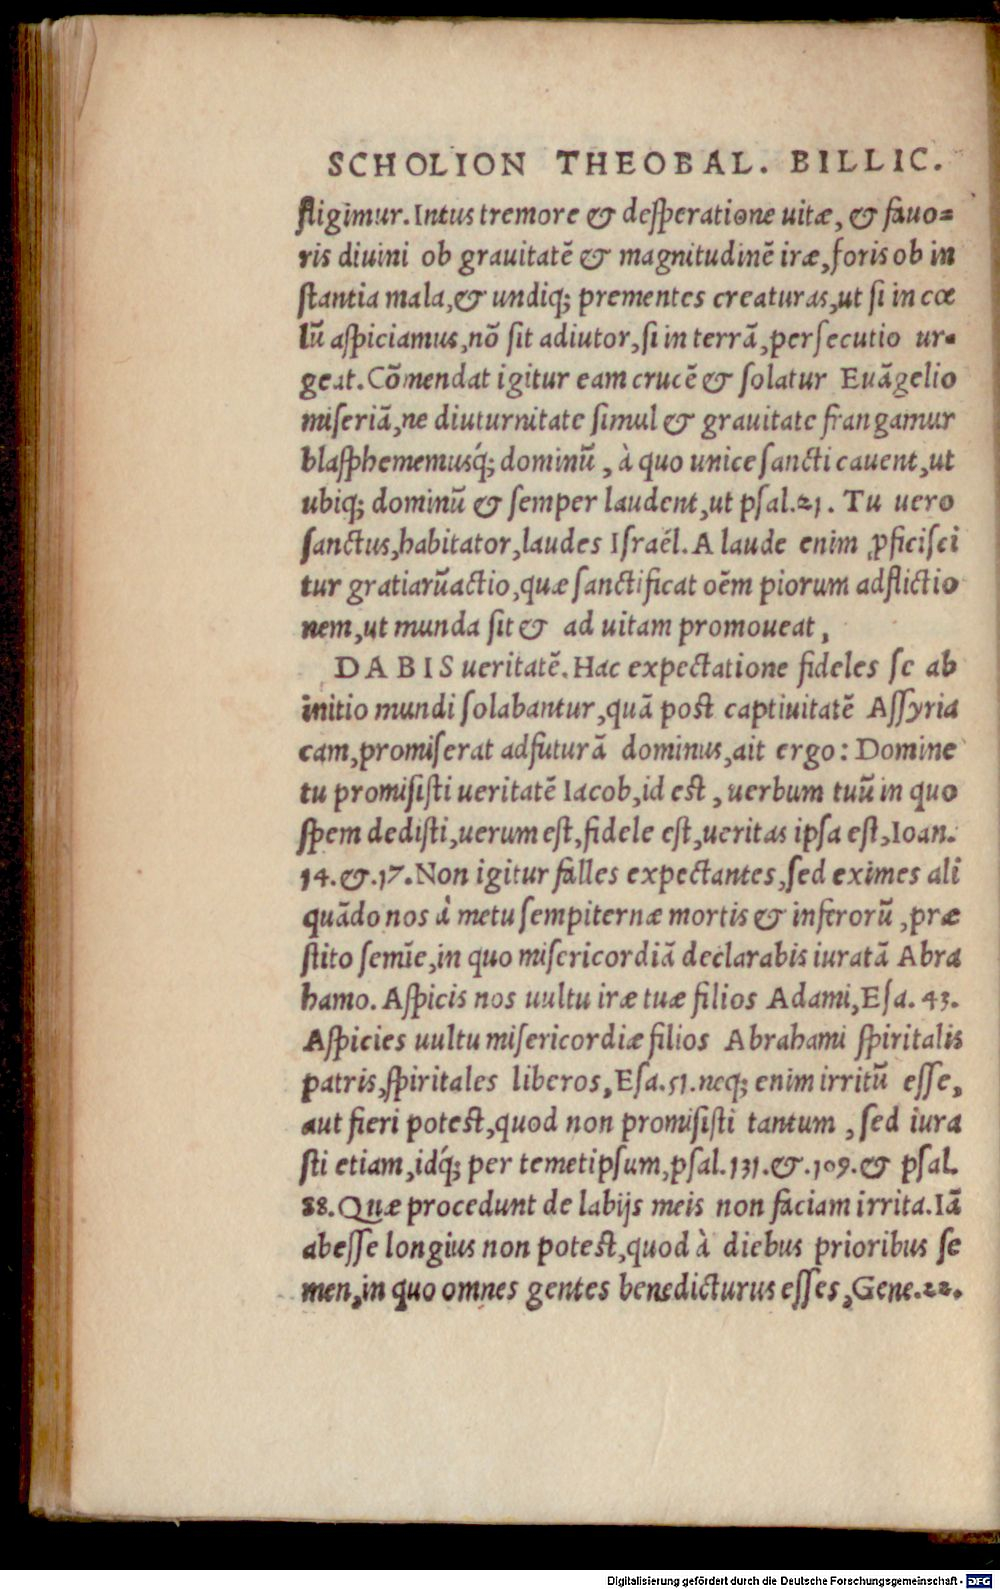 SCHOLION THEOBAL. BILLIC.
fligimur. Intus tremore & desperatione uitæ, & fauo=
ris diuini ob grauitatē & magnitudinē iræ, foris ob in
stantia mala, & undiq; prementes creaturas, ut si in cœ
lū aspiciamus, nō sit adiutor, si in terrā, persecutio ur-
geat. Cōmendat igitur eam crucē & solatur Euāgelio
miseriā, ne diuturnitate simul & grauitate frangamur
blasphememusq́; dominū, à quo unice sancti cauent, ut
ubiq; dominū & semper laudent, ut psal. 21. Tu uero
sanctus, habitator, laudes Israël. A laude enim ꝓficisci
tur gratiarūactio, quæ sanctificat oēm piorum adflictio
nem, ut munda sit & ad uitam promoueat,
DABIS ueritatē. Hac expectatione fideles se ab
initio mundi solabantur, quā post captiuitatē Assyria
cam, promiserat adfuturā dominus, ait ergo: Domine
tu promisisti ueritatē Iacob, id est, uerbum tuū in quo
spem dedisti, uerum est, fidele est, ueritas ipsa est, Ioan.
14. &. 17. Non igitur falles expectantes, sed eximes ali
quādo nos à metu sempiternæ mortis & inferorū, præ
stito semīe, in quo misericordiā declarabis iuratā Abra
hamo. Aspicis nos uultu iræ tuæ filios Adami, Esa. 43.
Aspicies uultu misericordiæ filios Abrahami spiritalis
patris, spiritales liberos, Esa. 51. neq; enim irritū esse,
aut fieri potest, quod non promisisti tantum, sed iura
sti etiam, idq́; per temetipsum, psal. 131. &. 109. & psal.
88. Quæ procedunt de labijs meis non faciam irrita. Iā
abesse longius non potest, quod à diebus prioribus se
men, in quo omnes gentes benedicturus esses, Gene. 22.
Digitalisierung gefördert durch die Deutsche Forschungsgemeinschaft - DFG